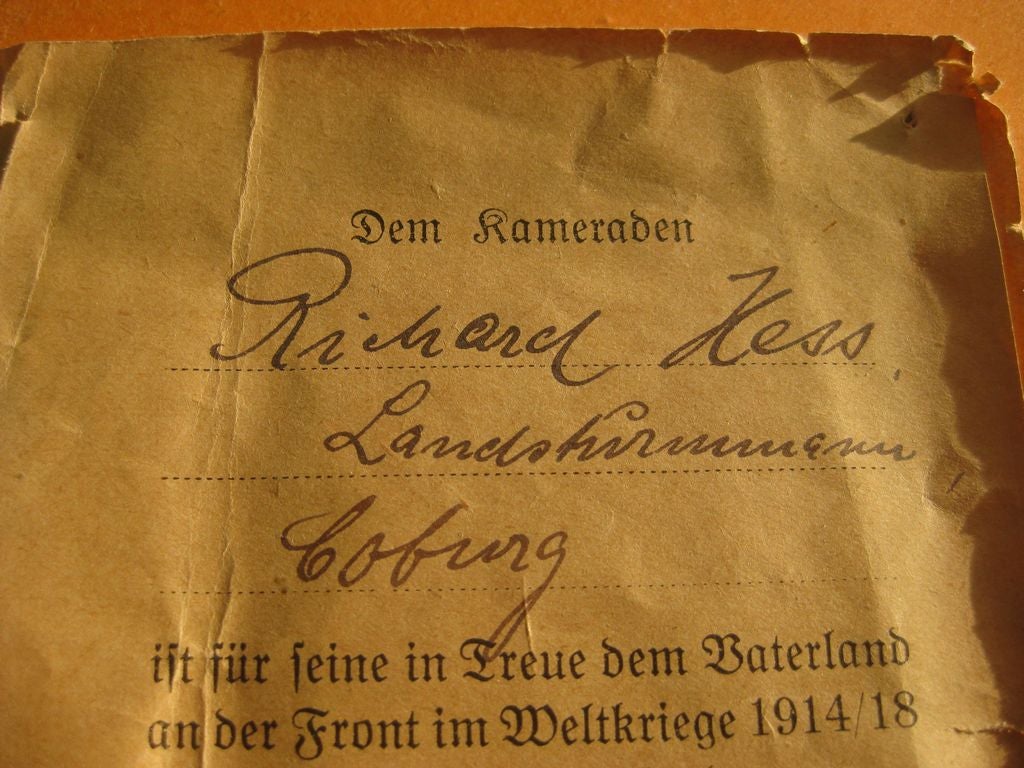 Dem Kameraden
Richard Hess
Landsturmmann
Coburg
ist für seine in Treue dem Vaterland
an der Front im Weltkriege 1914/18